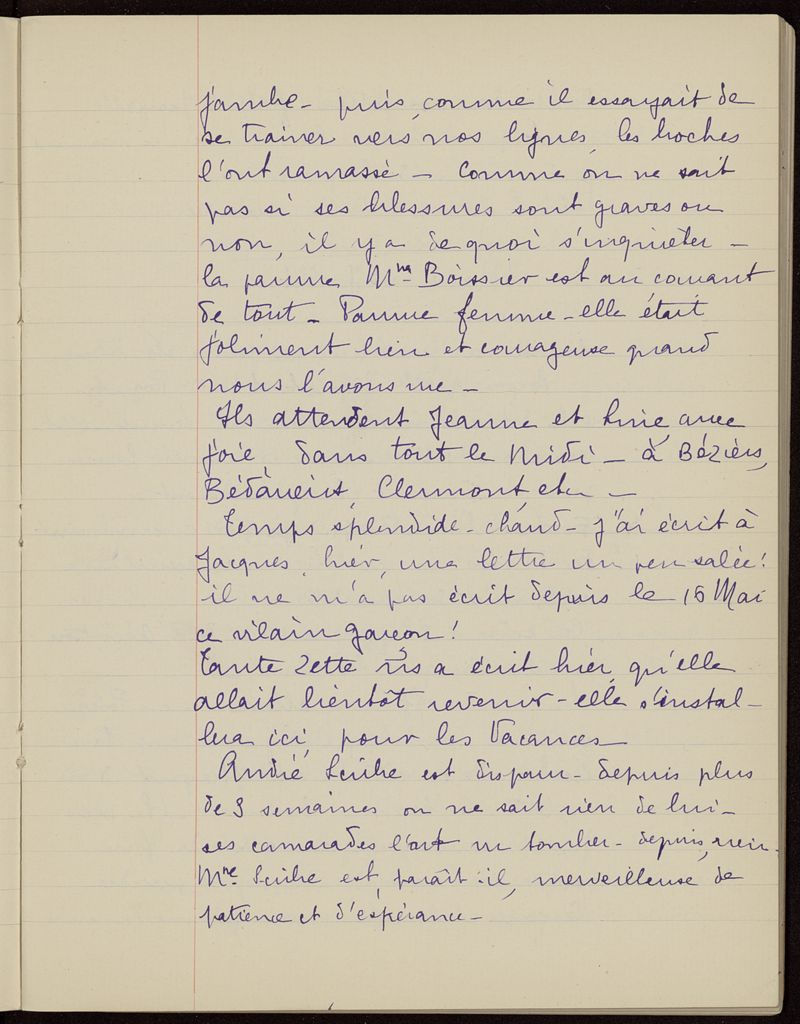 jambe - puis, comme il essayait de
se trainer vers nos lignes, les boches
l'ont ramassé - Comme on ne sait
pas si ses blessures sont graves ou
non, il y a de quoi s'inquiéter -
la pauvre Mme Boissier est au courant
de tout - Pauvre femme - elle était
joliment bien et courageuse quand
nous l'avons vue -
Ils attendent Jeanne et avec
joie, dans tout le Midi - à Béziers,
Bédarieux, Clermont, etc -
Temps splendide - chaud - j'ai écrit à
Jacques, hier, une lettre un peu salée!
il ne m'a pas écrit depuis le 16 Mai
ce vilain garçon!
Tante Zette ns a écrit hier qu'elle
allait bientôt revenir - elle s'instal-
lera ici, pour les Vacances -
André Scribe est disparu - depuis plus
de 3 semaines on ne sait rien de lui -
ses camarades l'ont vu tomber - depuis, rien.
Mme Scribe est, paraît-il, merveilleuse de
patience et d'espérance -